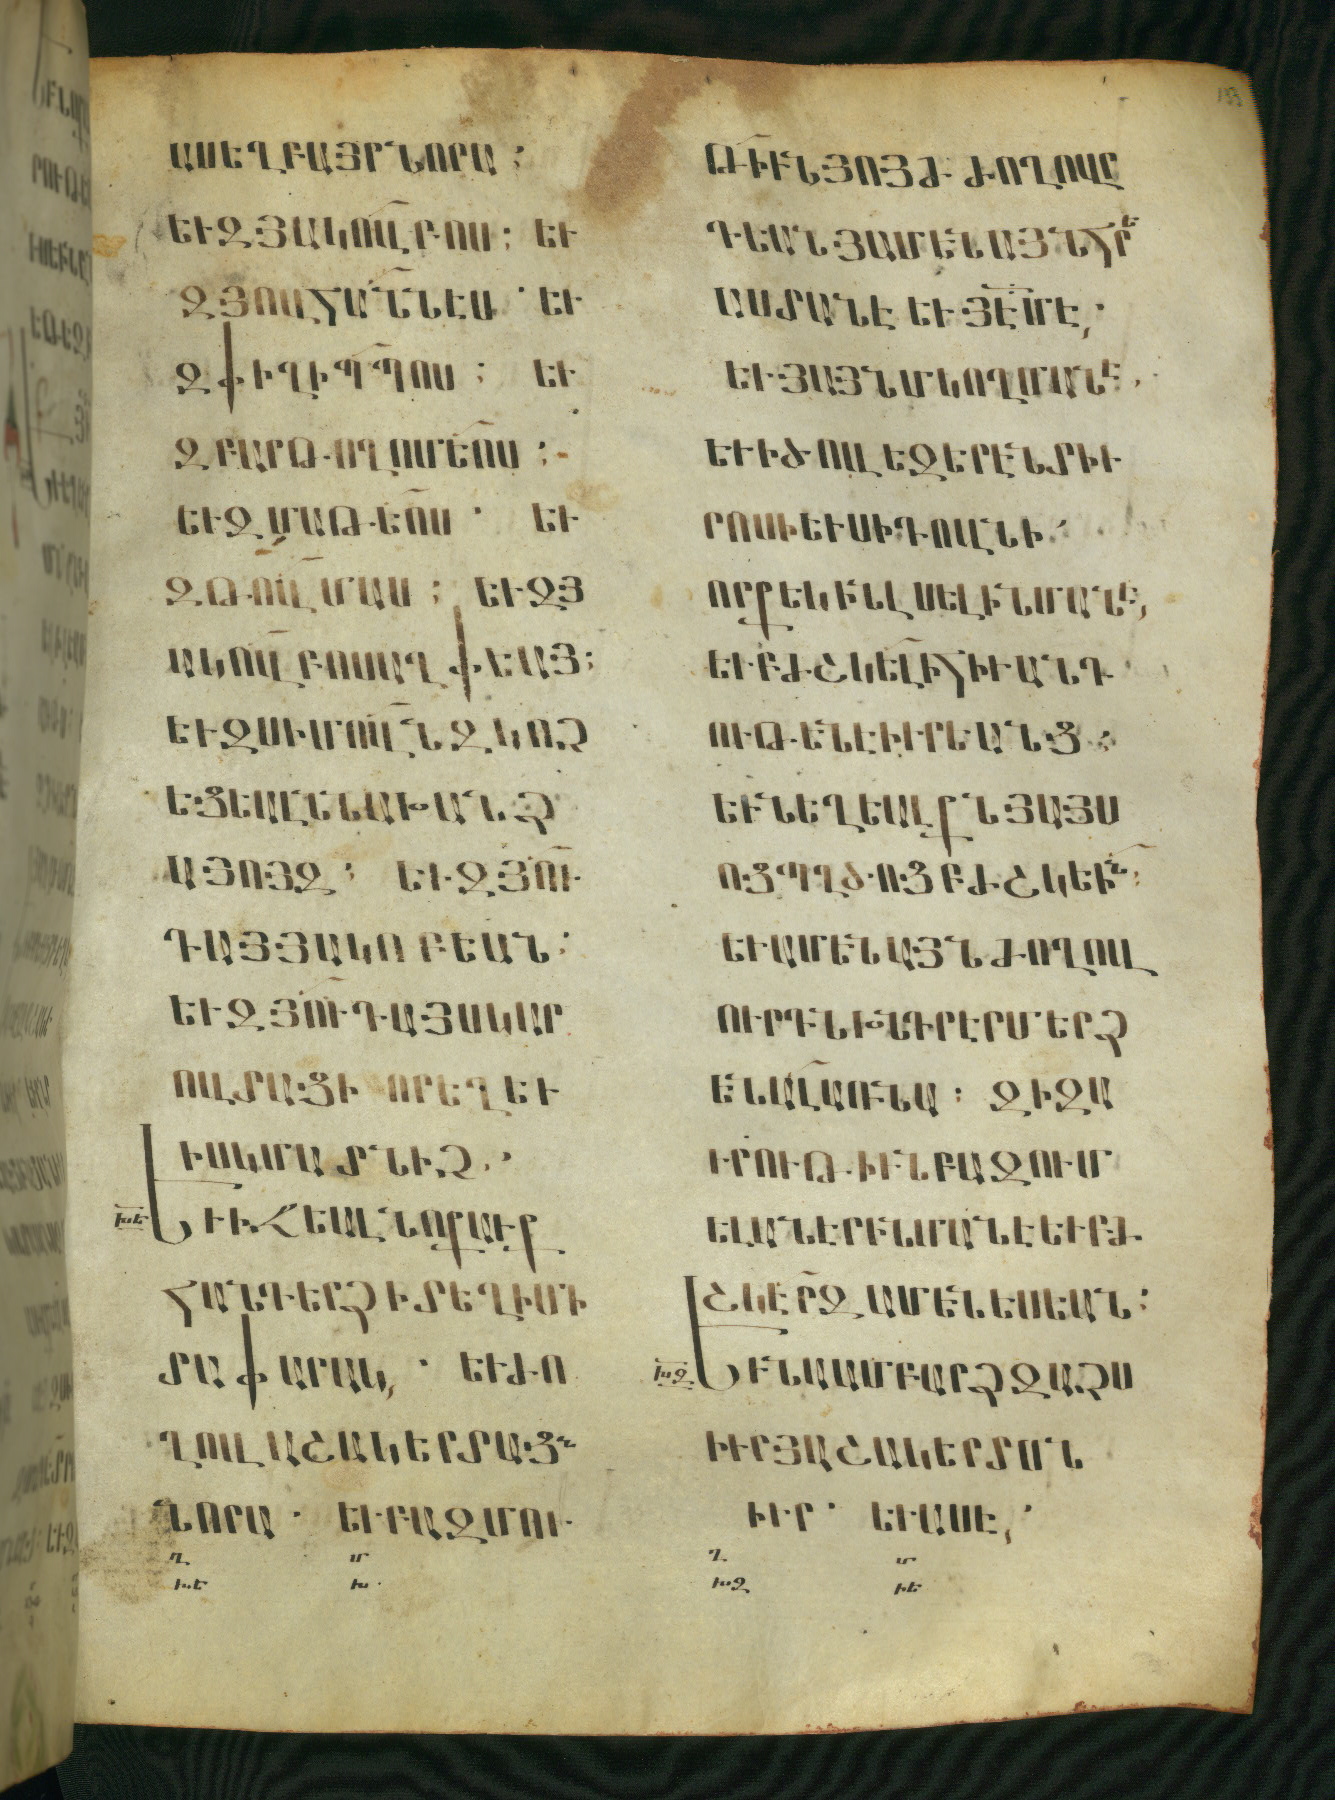 ԱՍԵՂԲԱՅՐՆՈՐԱ :
ԵՒԶՅԱԿՈՎԲՈՍ : ԵՒ
ԶՅՈՎՀԱՆՆԷՍ · ԵՒ
ԶՓԻՂԻՊՊՈՍ : ԵՒ
ԶԲԱՐԹՈՂՈՄԷՈՍ :
ԵՒԶՄԱԹԷՈՍ · ԵՒ
ԶԹՈՎՄԱՍ : ԵՒԶՅ
ԱԿՈՎԲՈՍԱՂՓԵԱՅ :
ԵՒԶՍԻՄՈՎՆԶԿՈՉ
ԵՑԵԱԼՆՆԱԽԱՆՁ
ԱՅՈՅԶ : ԵՒԶՅՈՒ
ԴԱՅՅԱԿՈԲԵԱՆ :
ԵՒԶՅՈՒԴԱՅՍԿԱՐ
ՈՎՏԱՑԻ ՈՐԵՂԵՒ
ԻՍԿՄԱՏՆԻՉ ·
ԽԵ ԵՒԻՋԵԱԼՆՈՔԱՒՔ
ՀԱՆԴԵՐՁԻՏԵՂԻՄԻ
ՏԱՓԱՐԱԿ, · ԵՒԺՈ
ՂՈՎԱՇԱԿԵՐՏԱՑՆ
ՆՈՐԱ · ԵՒԲԱԶՄՈՒ
Ղ Մ
ԽԵ Խ
ԹԻՒՆՅՈՅԺԺՈՂՈՎՐ
ԴԵԱՆՅԱՄԵՆԱՅՆՀՐԵ
ԱՍՏԱՆԷԵՒՅԷՄԷ, ·
ԵՒՅԱՅՆՄԿՈՂՄԱՆԷ ·
ԵՒԻԾՈՎԵԶԵՐԷՆՏԻՒ
ՐՈՍԻԵՒՍԻԴՈՎՆԻ ·
ՈՐՔԵԿԻՆԼՍԵԼԻՆՄԱՆԷ,
ԵՒԲԺՇԿԵԼԻՀԻՒԱՆԴ
ՈՒԹԵՆԷԻՒՐԵԱՆՑ :
ԵՒՆԵՂԵԱԼՔՆՅԱՅՍ
ՈՑՊՂԾՈՑԲԺՇԿԵԻՆ :
ԵՒԱՄԵՆԱՅՆԺՈՂՈՎ
ՈՒՐԴՆԽՆԴՐԷՐՄԵՐՁ
ԵՆԱԼԱՌՆԱ : ԶԻԶԱ
ՒՐՈՒԹԻՒՆԲԱԶՈՒՄ
ԵԼԱՆԷՐԻՆՄԱՆԷԵՒԲԺ
ՇԿԷՐԶԱՄԵՆԵՍԵԱՆ :
ԽԶ ԵՒՆԱԱՄԲԱՐՁԶԱՉՍ
ԻՒՐՅԱՇԱԿԵՐՏՍՆ
ԻՒՐ · ԵՒԱՍԷ, ·
Ղ Մ
ԽԶ ԻԵ